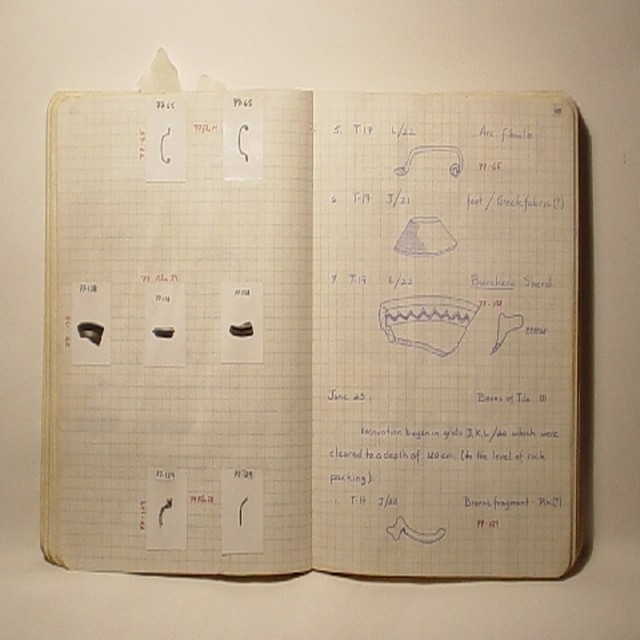 77-65
77-65
77-65
77-128
77-128
77-129
77-129
5. T-17 L/22 Arc fibula
77-65
6 T-17 J/21 foot / Greek fabric (?)
7. T-17 L/22 Bucchero Sherd
77-128
June 25. Boxes of Tile III
Excavation began in grids J, K, L/20 which were
cleared to a depth of 120 cm. (to the level of rock
packing)
1. T-17 J/20 Bronze fragment Pin (?)
77-129